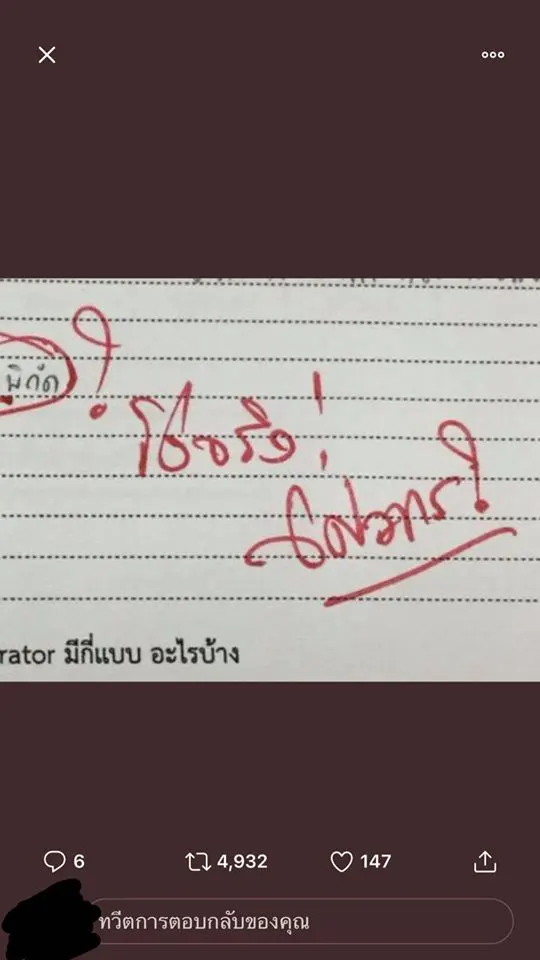 พิกัด ?
จริง !
?
rator มีกี่แบบ อะไรบ้าง
6 4,932 147
ทวีตการตอบกลับของคุณ